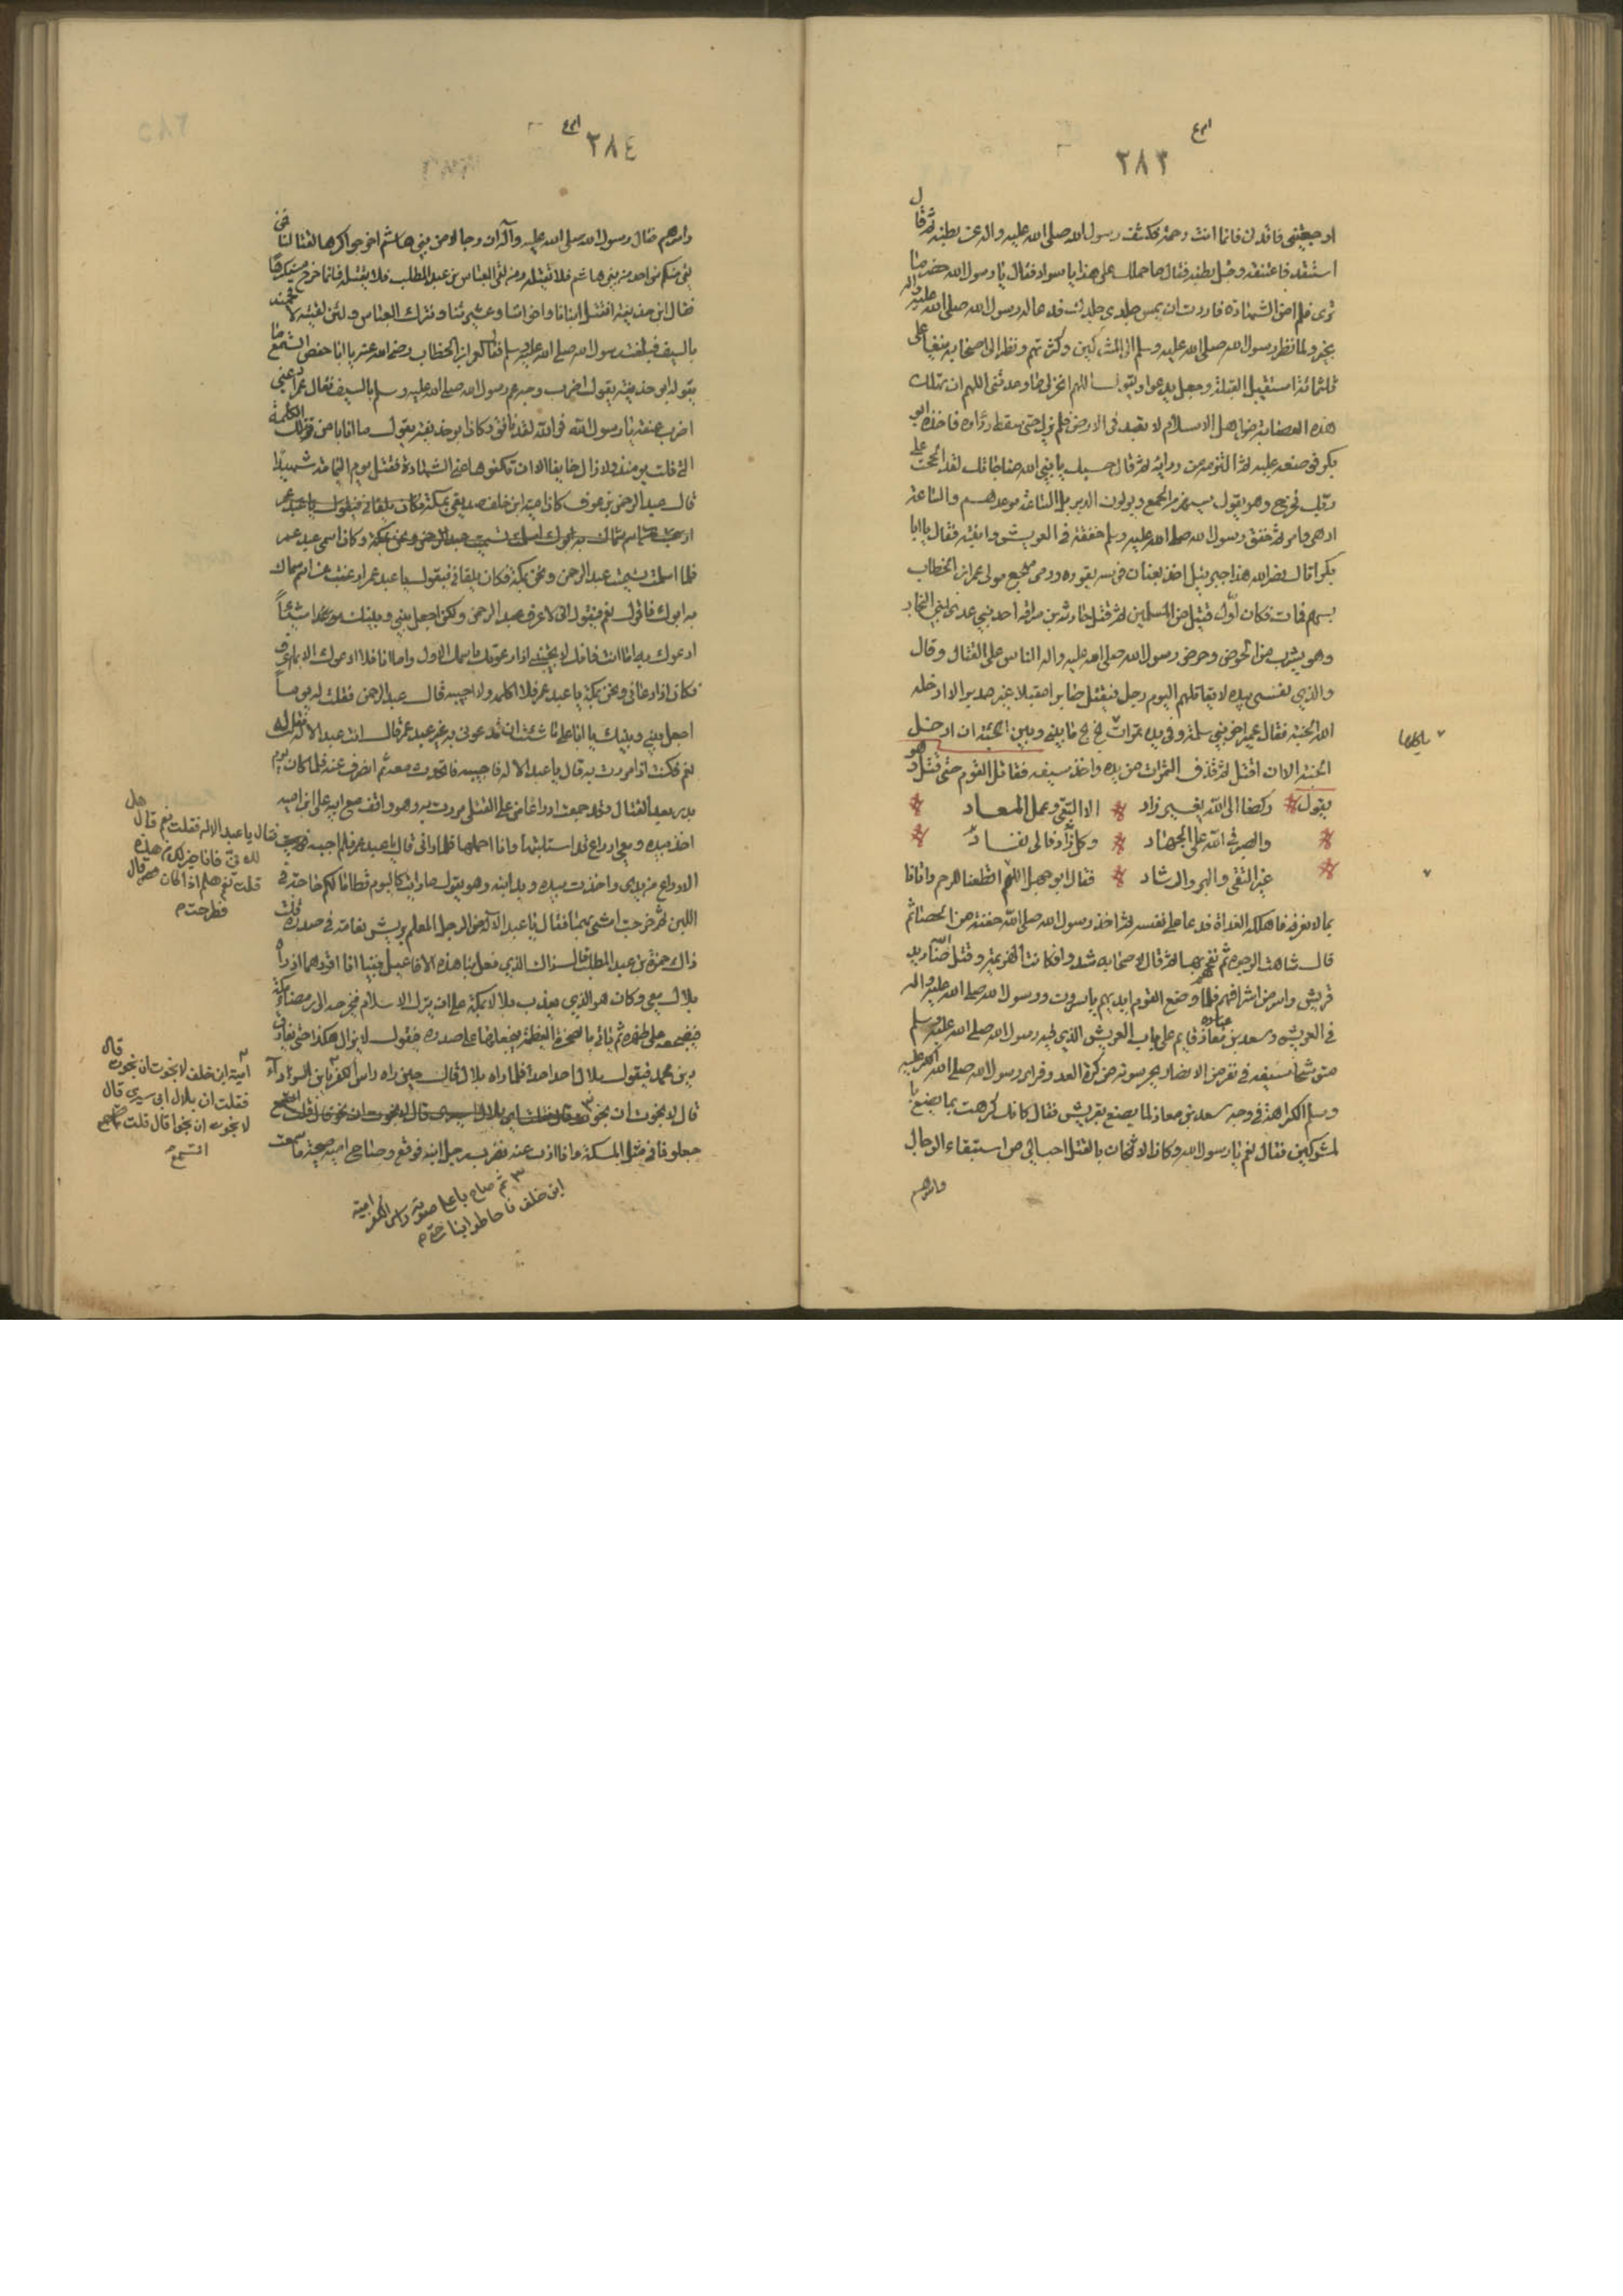 ٢٨٣
اوجعتني فاقدني فانما انت رحمة فكشف رسول الله صلى الله عليه واله عن بطنه ثم قال
استقد فاعتنقه وقبل بطنه فقال ما حملك على هذا يا سواد فقال يا رسول الله حضر ما
ترى فلم امن الشهادة فاردت ان يمس جلدي جلدك فدعا له رسول الله صلى الله عليه واله
بخير ولما نظر رسول الله صلى الله عليه وسلم الى المشركين وكثرتهم ونظر الى اصحابه نيفا على
ثلثمائة استقبل القبلة وجعل يدعوا ويقول اللهم انجز لي ما وعدتني اللهم ان تهلك
هذه العصابة من اهل الاسلام لا تعبد في الارض فلم يزل حتى سقط رداؤه فاخذه ابو
بكر فوضعه عليه ثم التزمه من ورائه ثم قال حسبك يا نبي الله مناجاتك لقد الححت على
ربك فخرج وهو يقول سيهزم الجمع ويولون الدبر بل الساعة موعدهم والساعة
ادهى وامر ثم خفق رسول الله صلى الله عليه وسلم خفقة في العريش وانتبه فقال يا ابا
بكر اتاك نصر الله هذا جبريل اخذ بعنان فرسه يقوده ورمي مهجع مولى عمر ابن الخطاب
بسهم فمات فكان اول قتيل من المسلمين ثم قتل حارثة بن سراقة احد بني عدي بن النجار
وهو يشرب من الحوض وحرض رسول الله صلى الله عليه واله الناس على القتال وقال
والذي نفسي بيده لا يقاتلهم اليوم رجل فيقتل صابرا مقبلا غير مدبر الا ادخله
الله الجنة فقال عمير اخو بني سلمة وفي يده تمرات بخ بخ ما بيني وبين الجنة ان ادخل
ياكلها
الجنة الا ان اقتل ثم قذف التمرات من يده واخذ سيفه فقاتل القوم حتى قتل وهو
يقول ركضا الى الله بغير زاد الا التقى وعمل المعاد
والصبر في الله على الجهاد وكل زاد فالى نفاد
غير التقى والبر والرشاد فقال ابو جهل اللهم اقطعنا للرحم واتانا
بما لا نعرفه فاهلكه الغداة فدعا على نفسه ثم اخذ رسول الله صلى الله حفنة من الحصباء ثم
قال شاهت الوجوه ثم نفحهم بها ثم قال لاصحابه شدوا فكانت الهزيمة وقتل الله صناديد
قريش واسر من اشرافهم فلما وضع القوم ايديهم ياسرون ورسول الله صلى الله عليه واله
في العريش وسعد بن معاذ قايم على باب العريش الذي فيه رسول الله صلى الله عليه وسلم
متوشحا بسيفه في نفر من الانصار يحرسونه من كرة العدو فراى رسول الله صلى الله عليه
وسلم الكراهة في وجه سعد بن معاذ لما يصنع بقريش فقال كانك كرهت بما يصنع با
لمشركين فقال نعم يا رسول الله وكان الاثخان بالقتل احب الي من استبقاء الرجال
واسرهم
٢٨٤
واسرهم فقال رسول الله صلى الله عليه وآله ان رجالا من بني هاشم اخرجوا كرها لقتالنا فمن
لقي منكم من احد من بني هاشم فلا تقتله ومن لقي العباس بن عبد المطلب فلا يقتله فانما خرج مستكرها
فقال ابن حذيفة انقتل ابنانا واخواننا وعشيرتنا ونترك العباس ولئن لقيته لالحمنه
بالسيف فبلغت رسول الله صلى الله عليه وسلم فقال لعمر ابن الخطاب رضى الله عنه يا ابا حفص اتسمع ما
يقول ابو حذيفة يقول اضرب وجه عم رسول الله صلى الله عليه وسلم بالسيف فقال عمر دعني
اضرب عنقه يا رسول الله فوالله لقد نافق وكان ابو حذيفة يقول ما انا بامن من تلك الكلمة
التي قلت يومئذ ولا ازال خايفا الا ان تكفرها عني الشهادة فقتل يوم اليمامة شهيدا
قال عبد الرحمن بن عوف كان امية ابن خلف صديقي بمكة فكان يلقاني فيقول يا عبد عمر
ارغبت عن اسم سماك به ابوك اسلمت تسميت عبد الرحمن ونحن بمكة وكان اسمي عبد عمر
فلما اسلمت تسميت عبد الرحمن ونحن بمكة فكان يلقاني فيقول يا عبد عمر ارغبت عن اسم سماك
به ابوك فاقول نعم فيقول اني لا اعرف عبد الرحمن ولكن اجعل بيني وبينك موعدا شيئاً
ادعوك به اما انت فانك لا تجيبني اذا دعوتك باسمك الاول واما انا فلا ادعوك الا بما اعرف
فكان اذا دعاني ونحن بمكة يا عبد عمر فلا اكلمه ولا اجيبه قال عبد الرحمن فقلت له يوماً
اجعل بيني وبينك يا ابا على ما شئت ان تدعوني به غير عبد عمر قال انت عبد الاله فقلت له
نعم فكنت اذا مررت به قال يا عبد الاله فاجيبه فاتحدث معه ثم انصرف عنه فلما كان يوم
بدر بعد القتال وقد جمعت ادراعا من على القتلى مررت به وهو واقف مع ابنه على ابن امية
اخذ بيده ومعي ادراع قد استلبتها وانا احملها فلما راني قال يا عبد عمر فلم اجبه
فقال يا عبد الاله فقلت نعم قال هل
لك في فانا خير لك من هذه
قلت نعم هلم اذا قال
فطرحت م
الادراع من يدي واخذت بيده ويد ابنه وهو يقول ما رايت كاليوم قط اما لكم حاجة في
اللبن ثم خرجت امشي بهما فقال يا عبد الاله من الرجل المعلم بريش نعامة في صدره قلت
ذاك حمزة بن عبد المطلب قال ذاك الذي فعل بنا هذه الافاعيل فبينا انا اقودهما اذ راه
بلال معي وكان هو الذي يعذب بلالا بمكة على ان يترك الاسلام فيخرجه الى رمضاء مكة
فيضجعه على ظهره ثم ياتي بالصخرة العظيمة يضعها على صدره فيقول لا يزال هكذا حتى يفارق
دين محمد فيقول بلال احد احد فلما راه بلال قال حين راه راس الكفر يا بن السوداء
امية ابن خلف لا نجوت ان نجوت قال
فقلت ان بلال ابي سيري قال
لا نجوت ان نجا قال قلت
اتسمع م
قال لا نجوت ان نجوا
ثم صاح باعلى صوته راس الكفر امية
ابن خلف فاحاطوا بنا حتى م
جعلونا في مثل المسكة وانا اذب عنه فضرب رجل ابنه فوقع وصاح امية صيحة ما سمعت